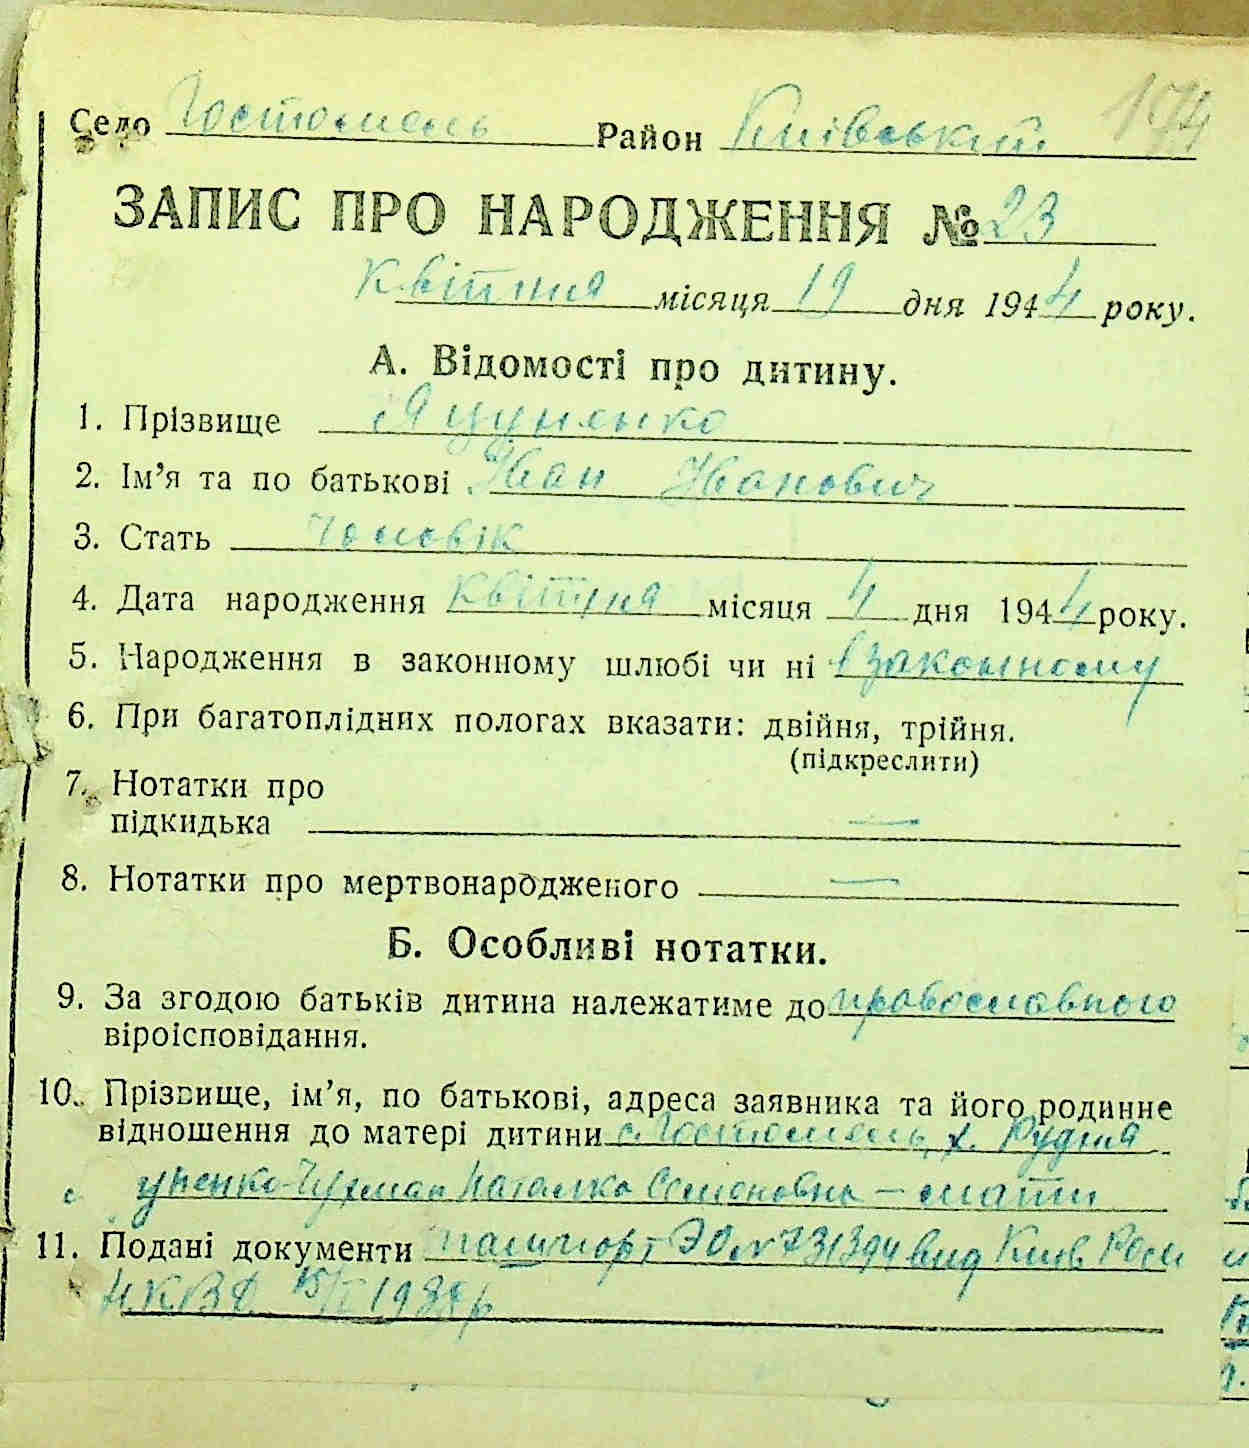 174
Село Гостомель Район Київський
ЗАПИС ПРО НАРОДЖЕННЯ № 23
Квітня місяця 19 дня 1944 року.
А. Відомості про дитину.
1. Прізвище Яцуненко
2. Ім’я та по батькові Іван Іванович
3. Стать чоловік
4. Дата народження квітня місяця 4 дня 1944 року.
5. Народження в законному шлюбі чи ні в законному
6. При багатоплідних пологах вказати: двійня, трійня.
(підкреслити)
7. Нотатки про
підкидька —
8. Нотатки про мертвонародженого —
Б. Особливі нотатки.
9. За згодою батьків дитина належатиме до православного
віроісповідання.
10. Прізвище, ім’я, по батькові, адреса заявника та його родинне
відношення до матері дитини с. Гостомель, х. Рудня
Наталка Семеновна – мати
11. Подані документи пашпорт ЭО № 731394 вид Київ.
Н.К.В.Д. 15/